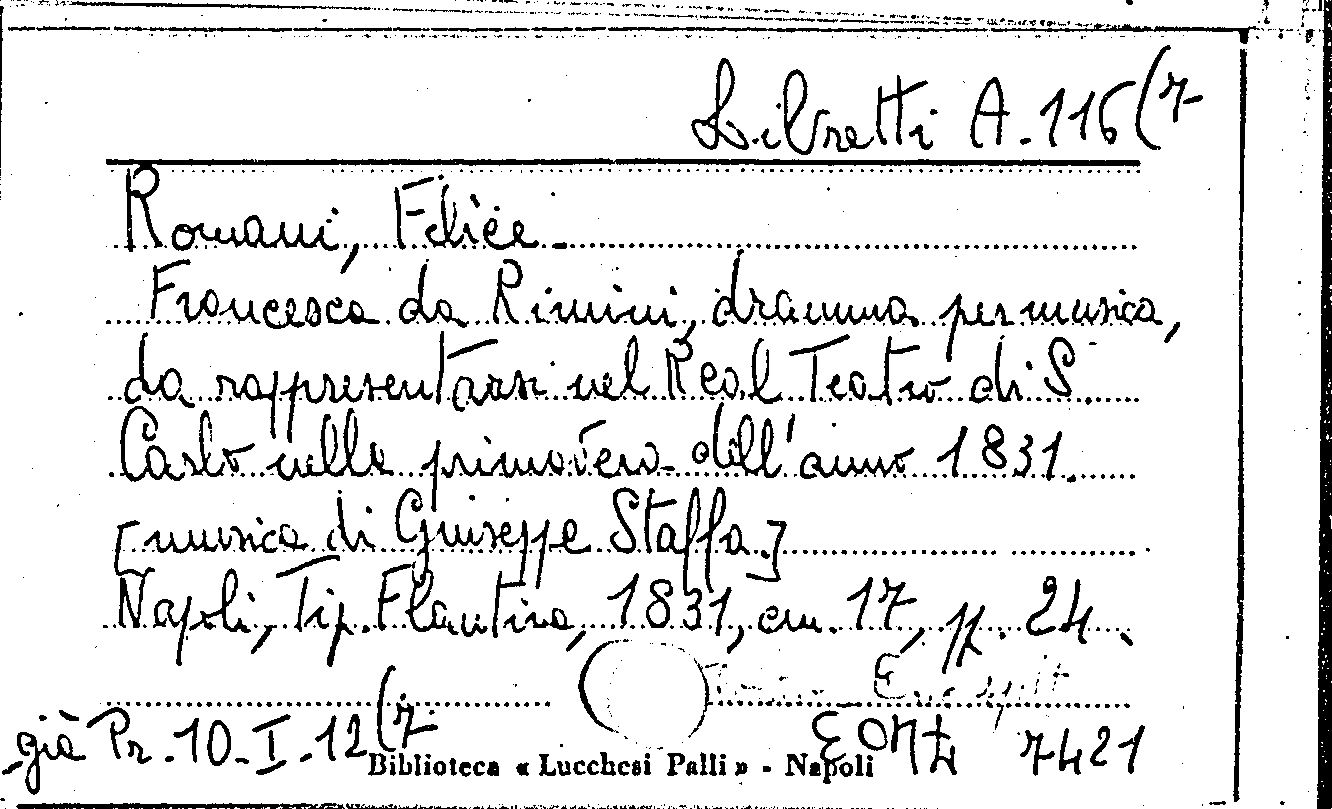 Libretti A. 116(7
Romani, Felice -
Francesca da Rimini, dramma per musica,
da rappresentarsi nel Real Teatro di S.
Carlo nella primavera dell'anno 1831.
[musica di Giuseppe Staffa.]
Napoli, Tip. Flautina, 1831, cm. 17, pp. 24.
già Pr. 10-I-12(7
7421
Biblioteca « Lucchesi Palli » - Napoli